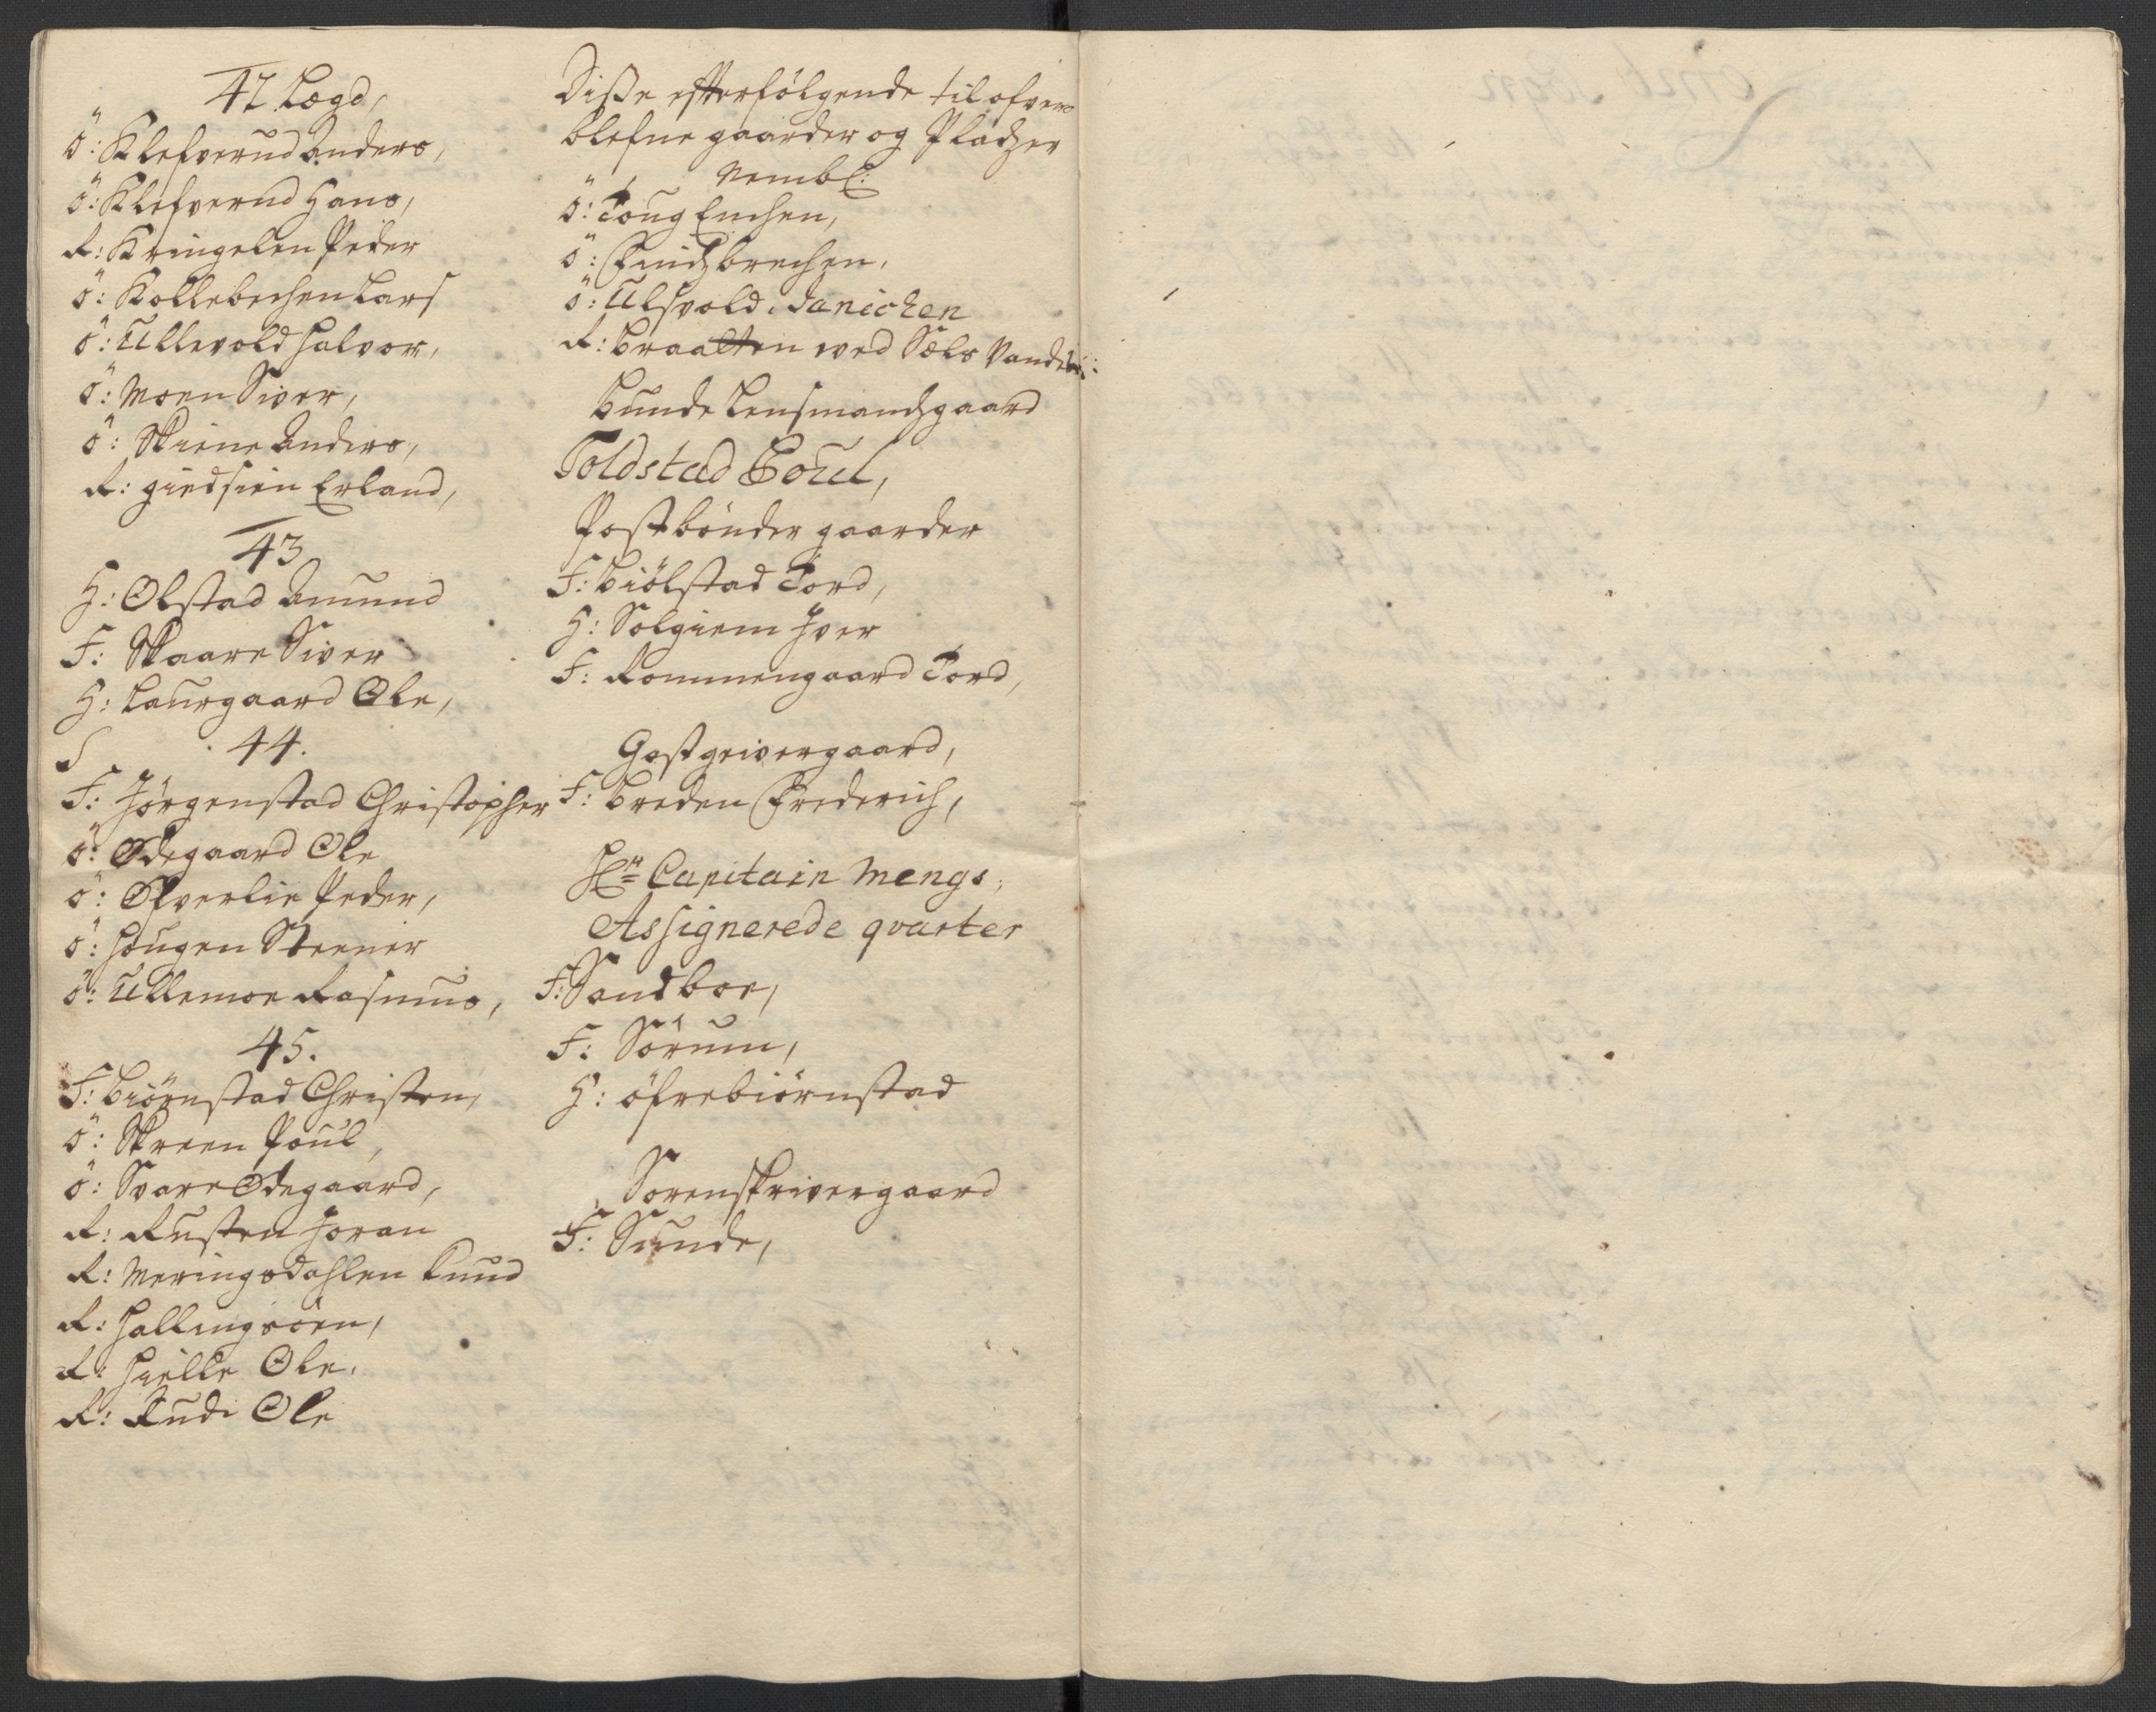 42 Lægd,
ö: Klefverud Anders,
ö: Klefverud Hans,
R: Kringelen Peder
ö: Kollebechen Lars
ö: Ullevold Halvor,
ö: Moen Siver,
ö: Skiene Anders,
R: giedsien Erland,
43
H: Olstad Amund
F: Skaare Siver
H: Laurgaard Ole,
44.
F: Jörgenstad Christopher
ö: Ødegaard Ole
ö: Øfverlie Peder,
ö: Hougen Steener
ö: Ullemoe Rasmus,
45.
F: Biörnstad Christen,
ö: Skreen Poul,
ö: Svare Ødegaard,
R: Rusten Joran
R: Meringsdahlen Knud
R: Hallingsöen,
R: Hielle Ole,
R: Rudi Ole
Disse efterfölgende til ofver
blefne gaarder og Pladzer
Nembl:
ö: Toug Enchen,
ö: Findzbrechen,
ö: Ulsvold Janichen
R: Braatten wed Sels Vandet
Bunde Lensmandzgaard
Toldstad Poul,
Postbönder gaarder
F: Biölstad Tord,
H: Solgiem Iver
F: Rommengaard Tord,
Gestgivergaard,
F: Breden Frederich,
Hr Capitain Mengs,
Assignerede qvarter
F: Sandboe,
F: Sörum,
H: öfrebiörnstad
Sorenskrivergaard
F: Sunde,